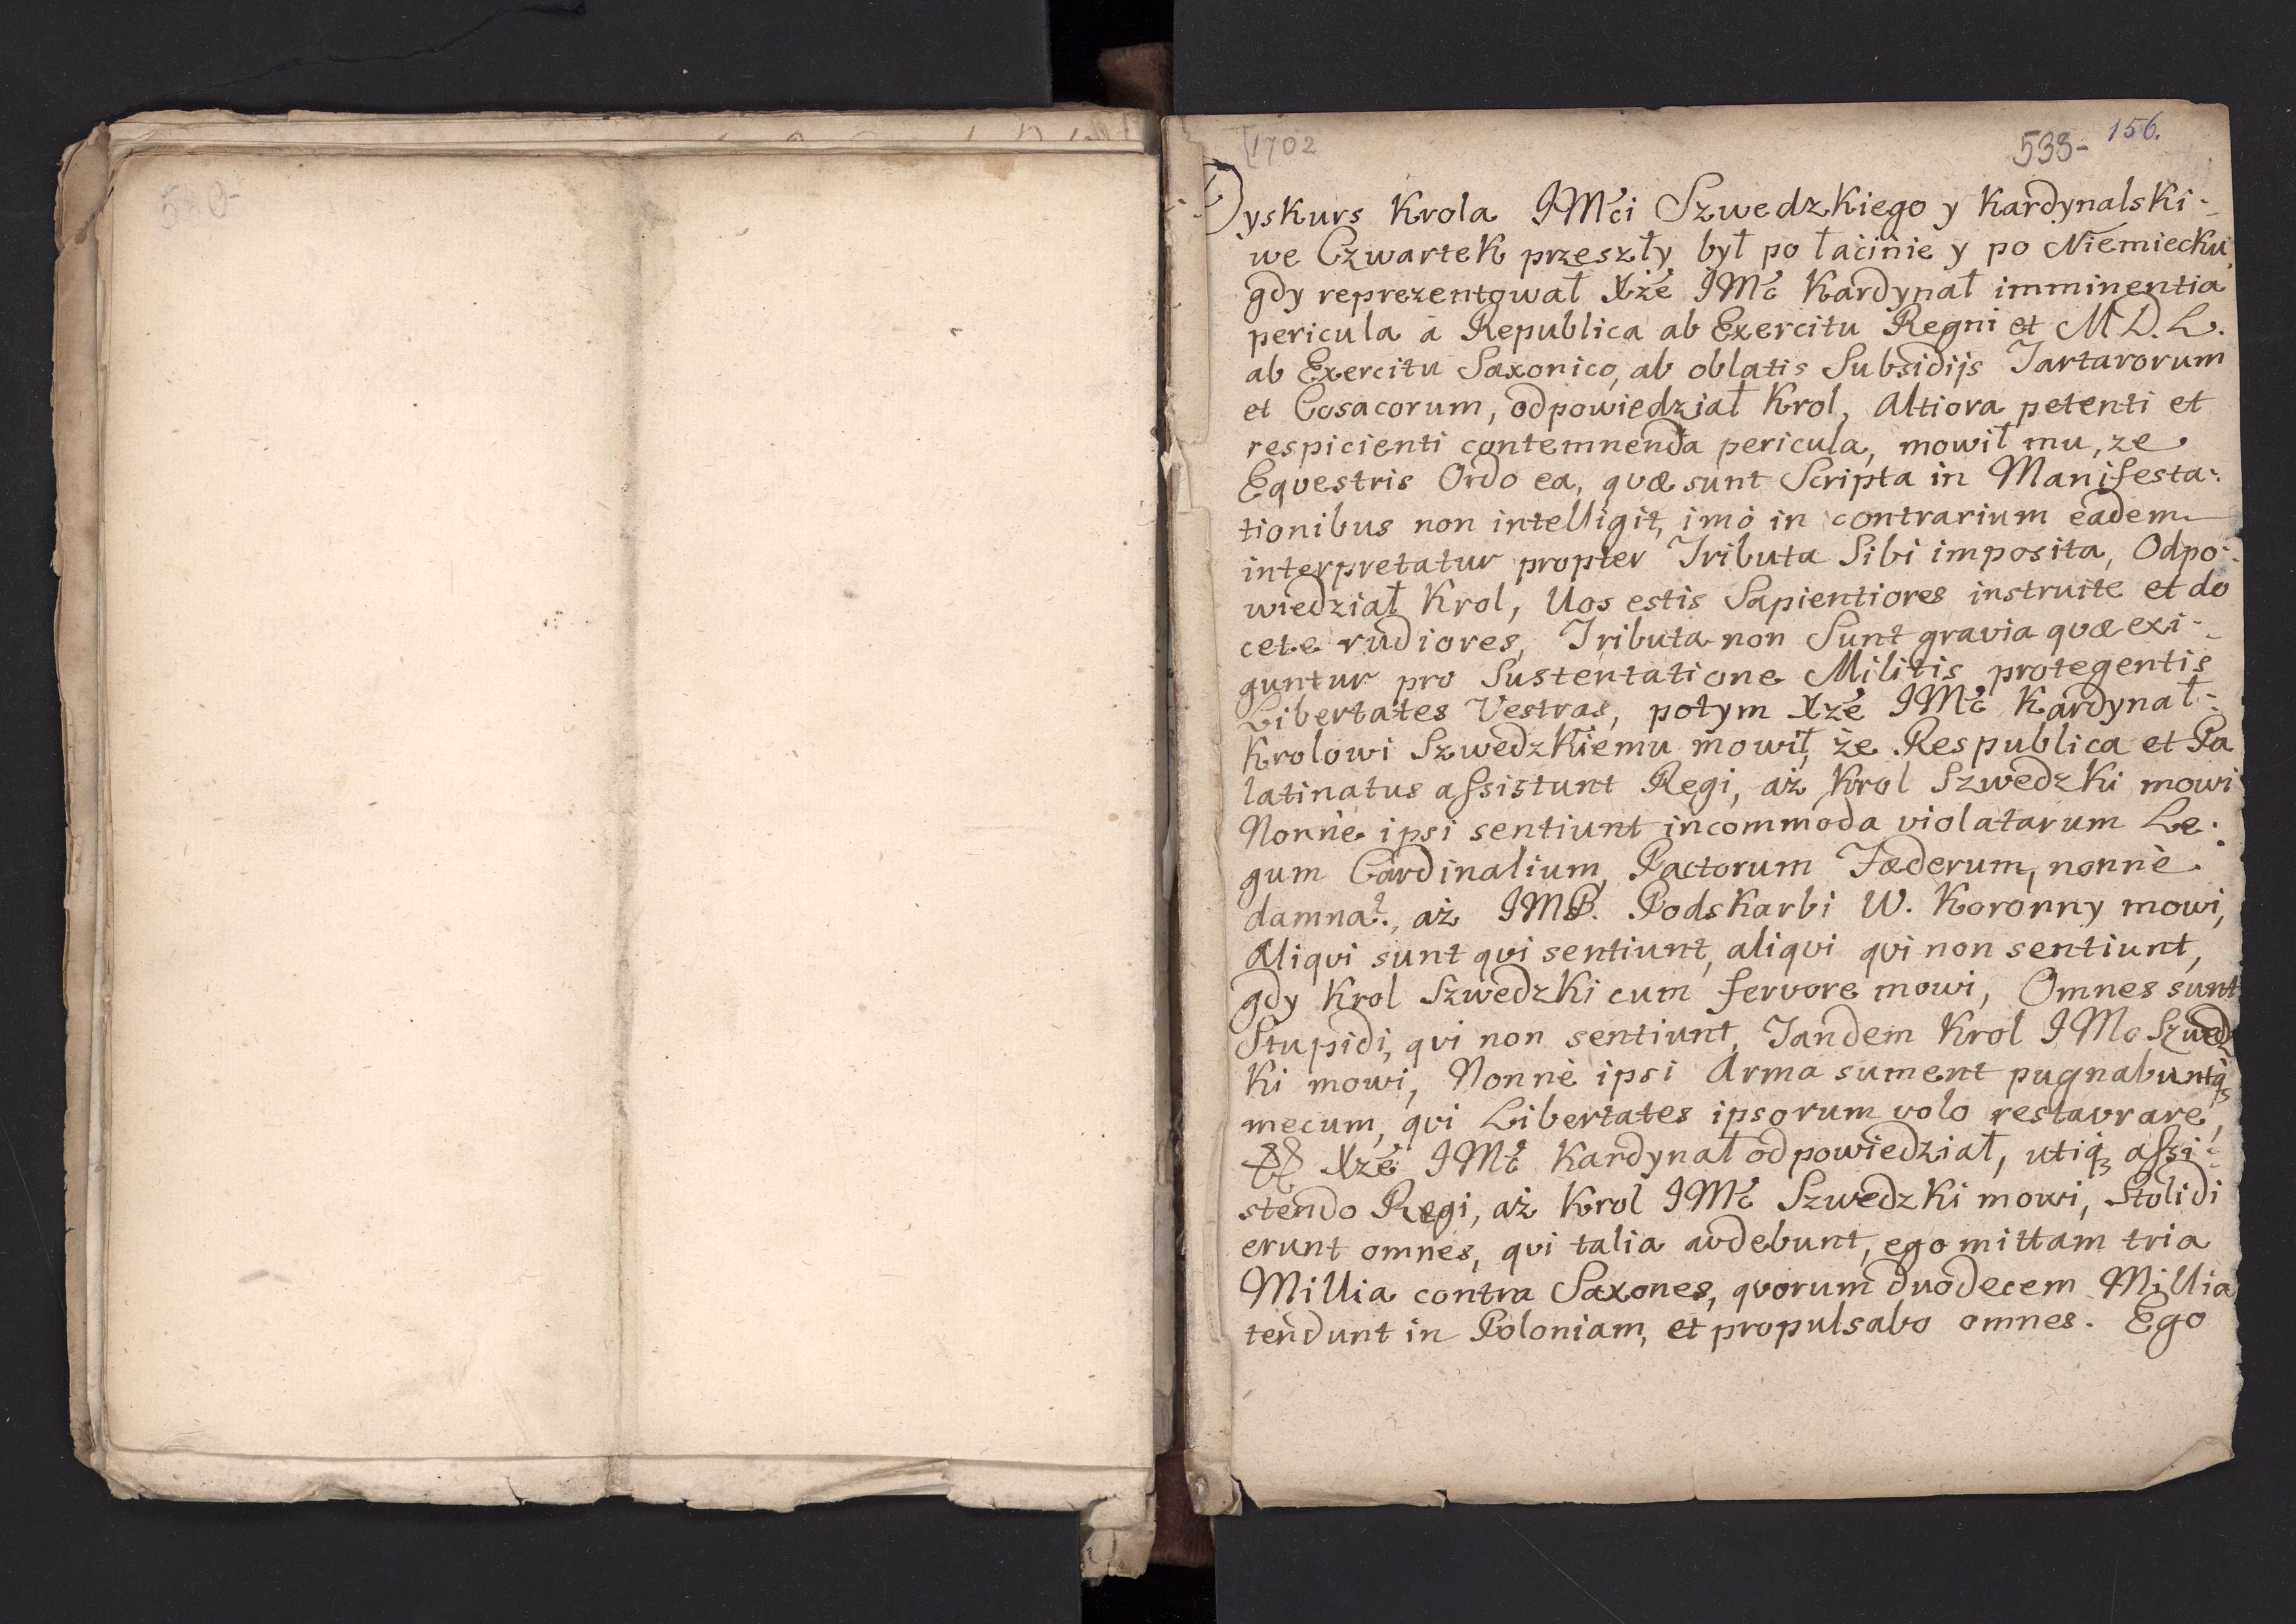 [1702
533- 156.
Dyskurs Krola JMći Szwedzkiego y Kardynalski-
we Czwartek przeszły był po łacinie y po Niemiecku,
gdy reprezentował Xżę JMć Kardynał imminentia
pericula a Republica ab Exercitu Regni et M D. L.
ab Exercitu Saxonico, ab oblatis Subsidijs Tartarorum
et Cosacorum, odpowiedział Krol, Altiora petenti et
respicienti contemnenda pericula, mowił mu, ze
Eqvestris Ordo ea, qvæ sunt Scripta in Manifesta-
tionibus non intelligit, imò in contrarium eadem
interpretatur propter Tributa Sibi imposita, Odpo-
wiedział Krol, Uos estis Sapientiores instruite et do
cete rudiores, Tributa non Sunt gravia qvæ exi-
guntur pro Sustentatione Militis protegentis
Libertates Vestras, potym Xżę JMć Kardynał-
Krolowi Szwedzkiemu mowił, że Respublica et Pa
latinatus assistunt Regi, aż Krol Szwedzki mowi
Nonne ipsi sentiunt incommoda violatarum Le-
gum Cardinalium, Pactorum Fæderum, nonnè
damna?, aż JMP. Podskarbi W. Koronny mowi,
Aliqvi sunt qvi sentiunt, aliqvi qvi non sentiunt,
gdy Krol Szwedzki cum fervore mowi, Omnes sunt
Stupidi, qvi non sentiunt, Tandem Krol JMc Szwedz
ki mowi, Nonnè ipsi Arma sument pugnabuntq3
mecum, qvi Libertates ipsorum volo restavrare,
Xżę JMć Kardynał odpowiedział, utiq3 assi-
stendo Regi, aż Krol JMć Szwedzki mowi, Stolidi
erunt omnes, qvi talia avdebunt, ego mittam tria
Millia contra Saxones, qvorum duodecem Millia
tendunt in Poloniam, et propulsabo omnes. Ego